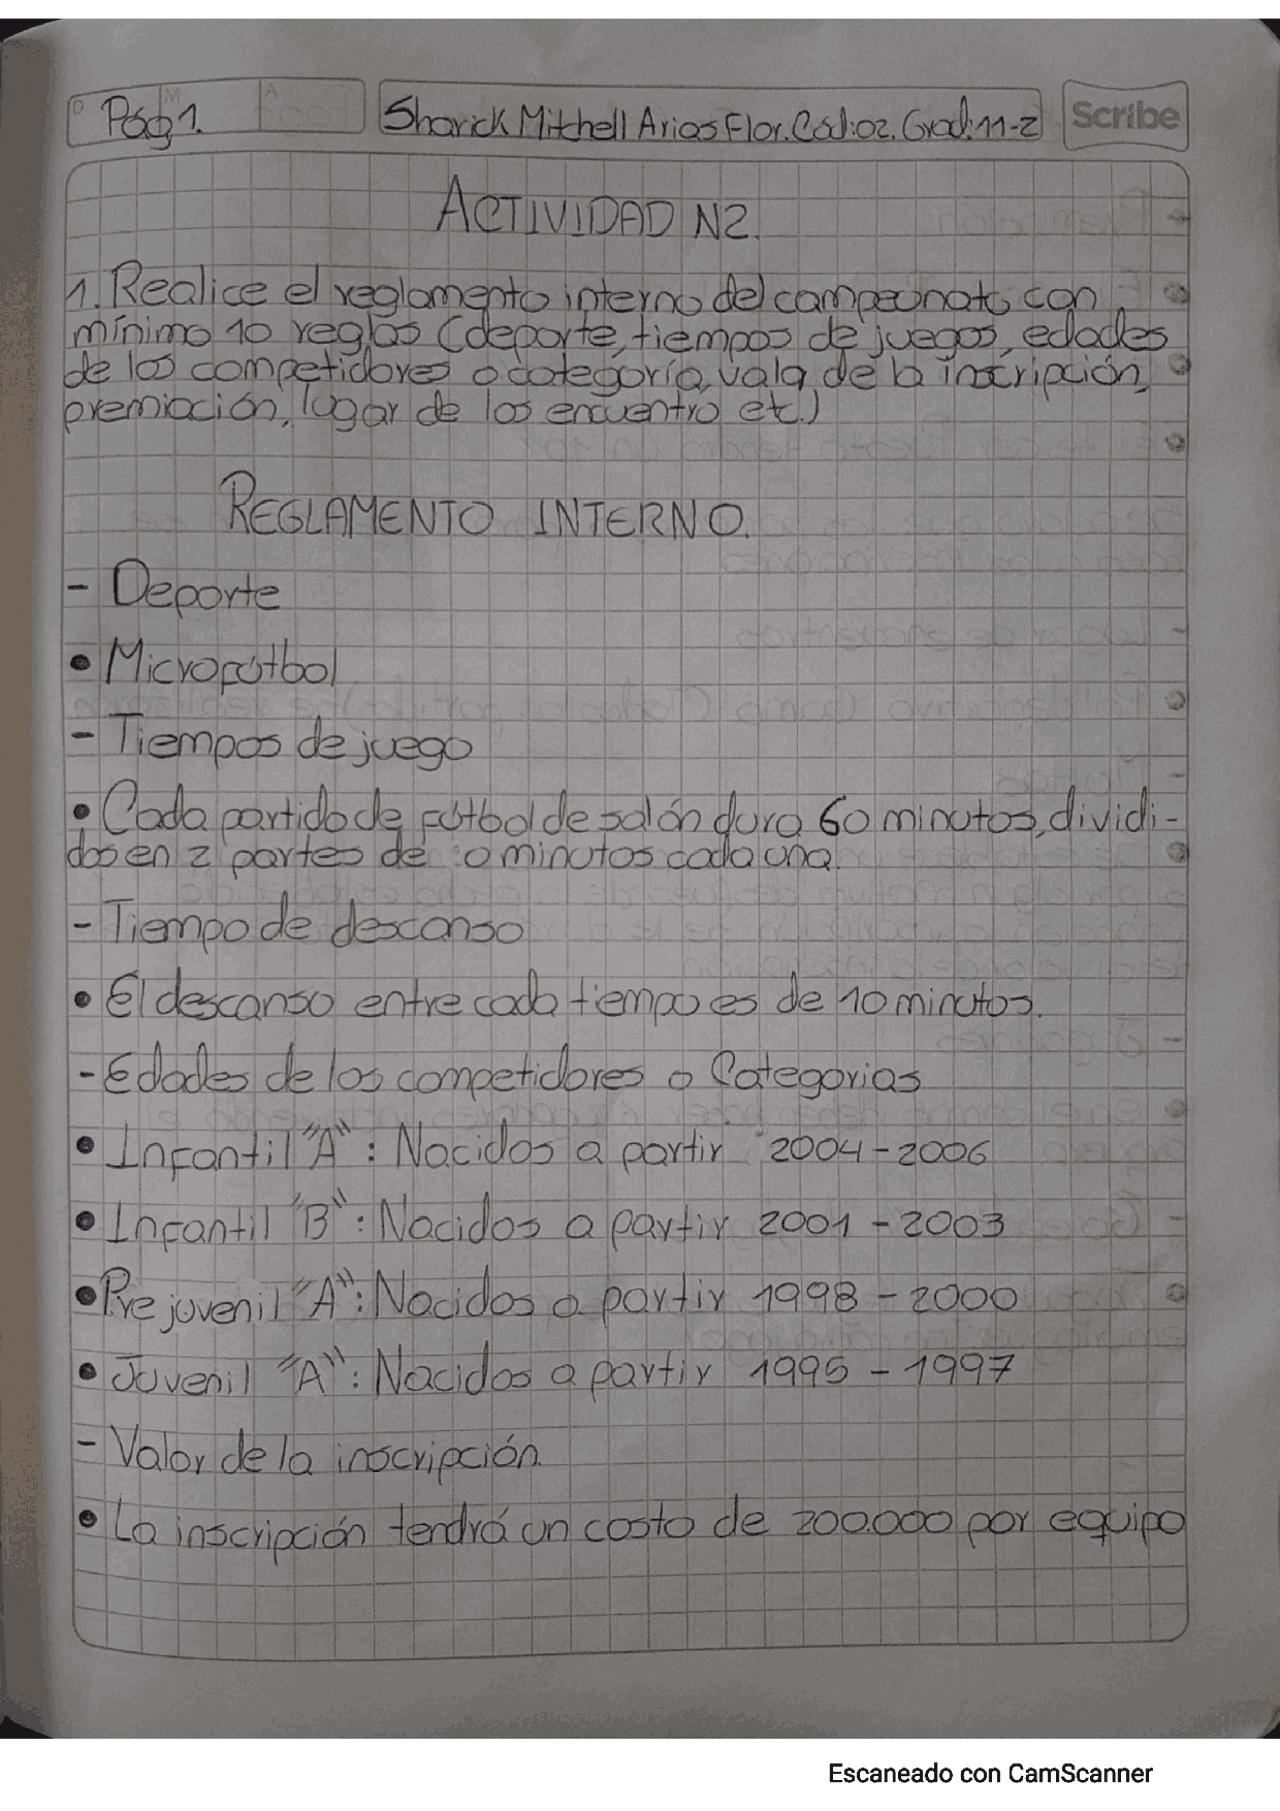 D M A
Pág 1. Sharick Mitchell Arias Flor. Cód:02. Grad:11-2 Scribe
ACTIVIDAD N2.
1. Realice el reglamento interno del campeonato con
mínimo 10 reglas (deporte, tiempos de juegos, edades
de los competidores o categoría, valor de la inscripción,
premiación, lugar de los encuentro etc.)
REGLAMENTO INTERNO.
- Deporte
• Microfútbol
- Tiempos de juego
• Cada partido de fútbol de salón dura 60 minutos, dividi-
dos en 2 partes de 0 minutos cada una.
- Tiempo de descanso
• El descanso entre cada tiempo es de 10 minutos.
- Edades de los competidores o Categorias
• Infantil "A": Nacidos a partir 2004-2006
• Infantil "B": Nacidos a partir 2001-2003
• Pre juvenil "A": Nacidos a partir 1998-2000
• Juvenil "A": Nacidos a partir 1995-1997
- Valor de la inscripción
• La inscripción tendrá un costo de 200.000 por equipo
Escaneado con CamScanner